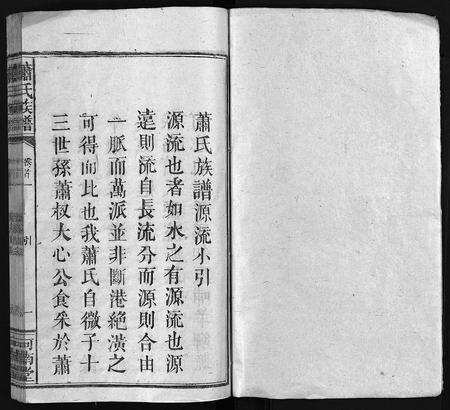 蕭氏族譜源流小引
源流也者如水之有源流也源
遠則流自長流分而源則合由
一脈而萬派並非斷港絕潢之
可得而比也我蕭氏自微子十
三世孫蕭叔大心公食采於蕭
蕭氏族譜
卷首
引
一